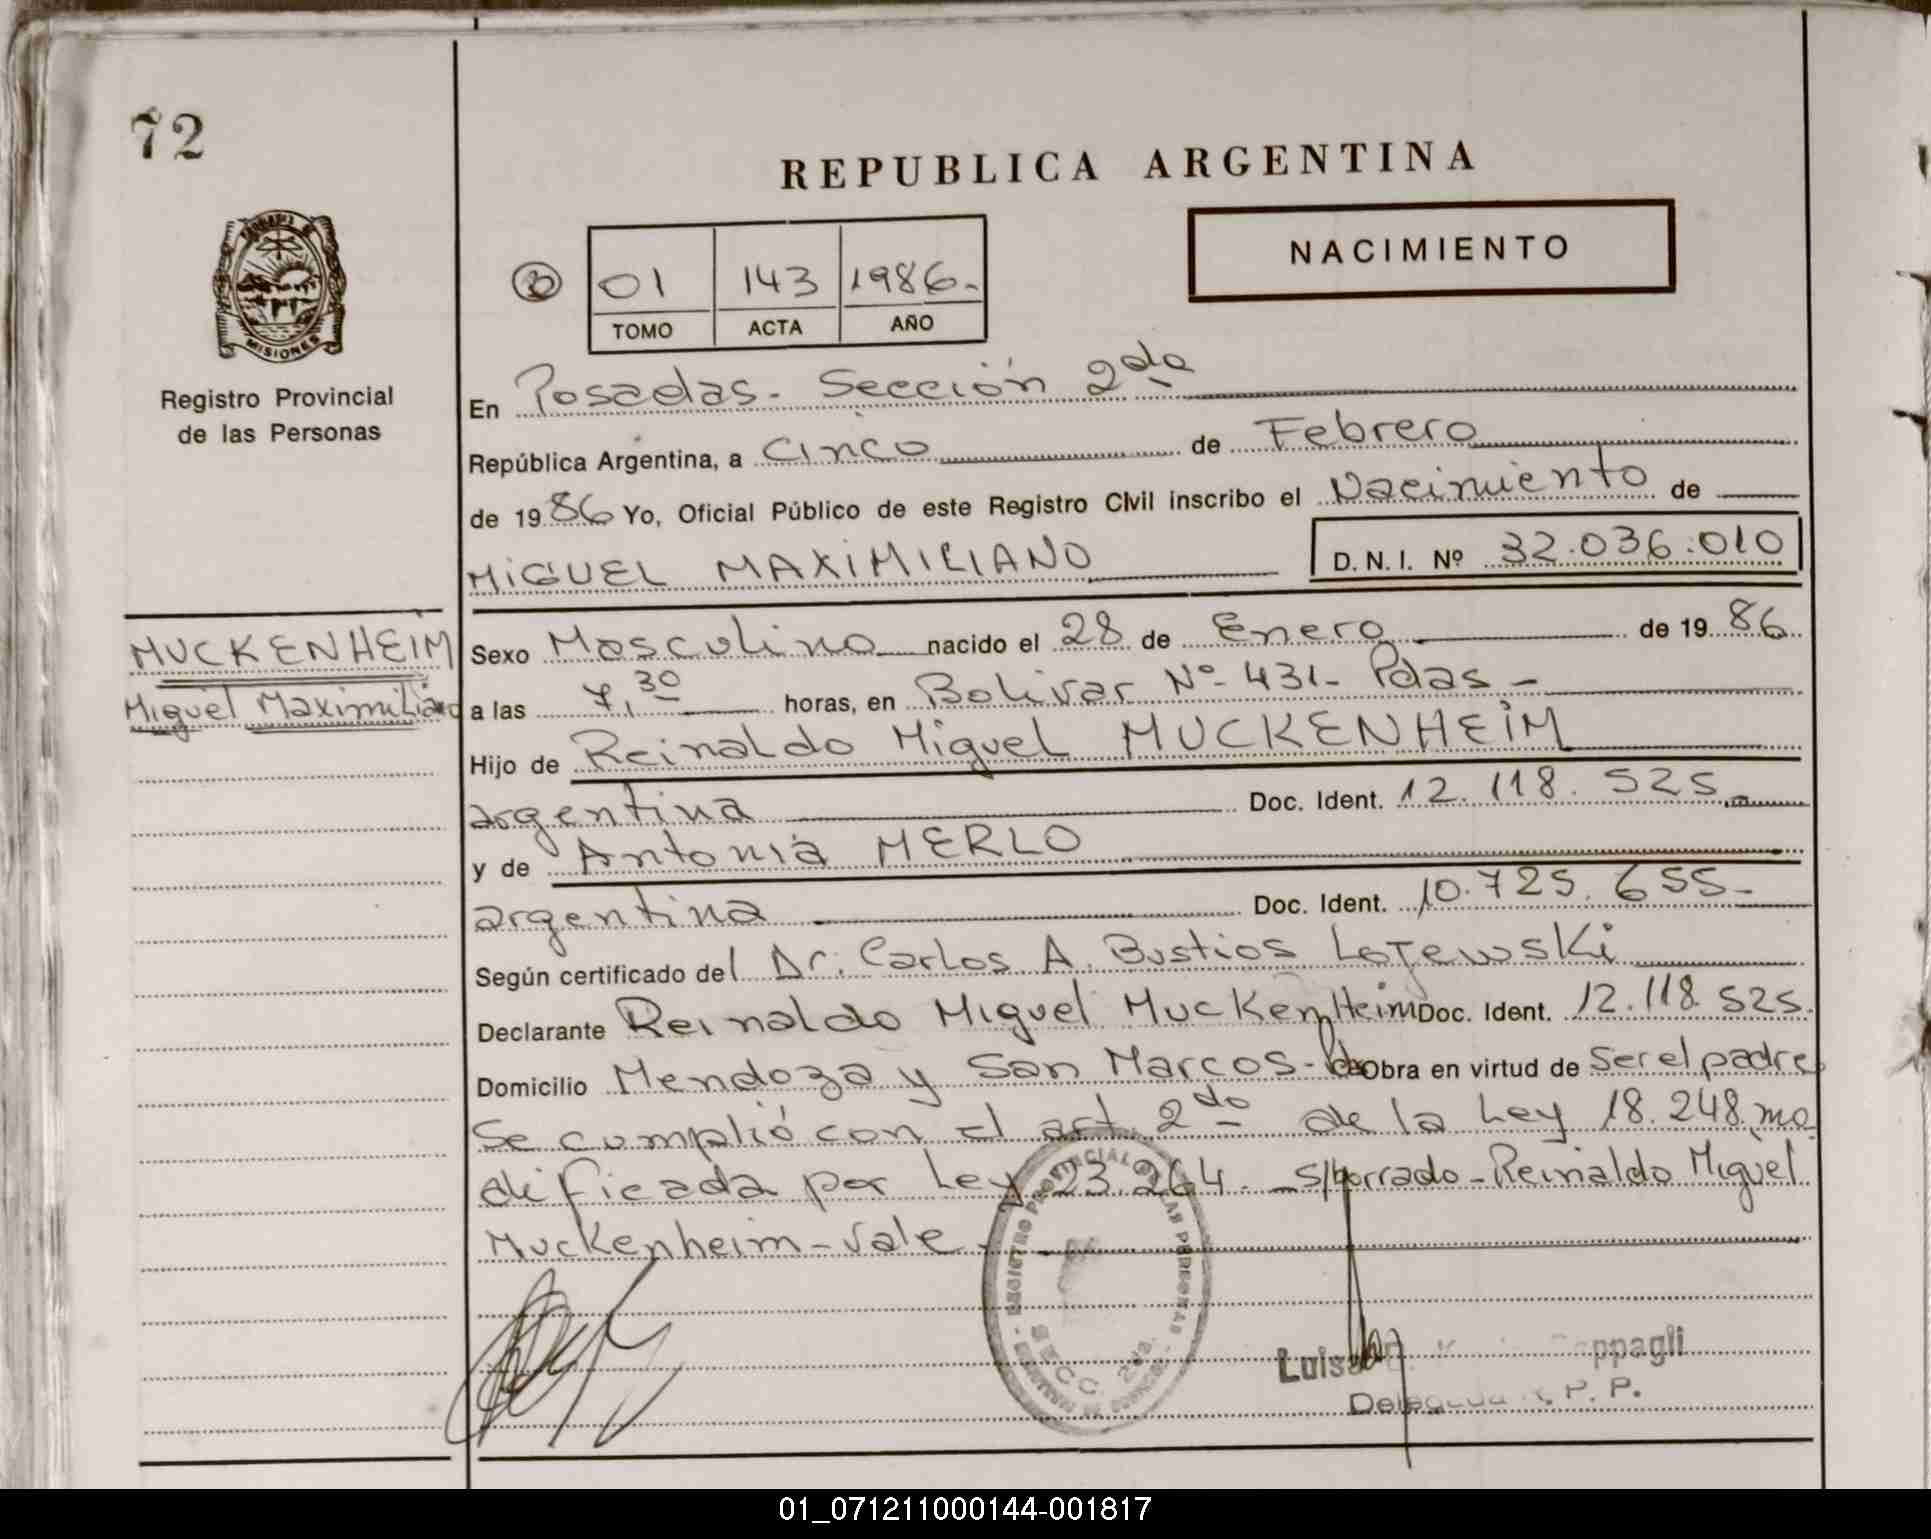 72
REPUBLICA ARGENTINA
NACIMIENTO
01 143 1986.-
TOMO ACTA AÑO
MISIONES
Registro Provincial
de las Personas
En Posadas - Sección 2da
República Argentina, a Cinco de Febrero
de 1986 Yo, Oficial Público de este Registro Civil inscribo el Nacimiento de
MIGUEL MAXIMILIANO D.N.I. Nº 32.036.010
MUCKENHEIM
Miguel Maximiliano
Sexo Masculino nacido el 28 de Enero de 1986
a las 7,30 horas, en Bolivar Nº 431 - Pdas -
Hijo de Reinaldo Miguel MUCKENHEIM
argentina Doc. Ident. 12.118.525.-
y de Antonia MERLO
argentina Doc. Ident. 10.725.655.-
Según certificado del Dr. Carlos A. Bustios Lojewski
Declarante Reinaldo Miguel MuckenHeim Doc. Ident. 12.118.525.
Domicilio Mendoza y San Marcos - Obra en virtud de Ser el padre
Se cumplió con el art. 2do de la Ley 18.248 mo
dificada por Ley 23.264. - s/borrado - Reinaldo Miguel
Muckenheim - Vale -
REGISTRO PROVINCIAL DE LAS PERSONAS
SECC. 2da.
Luisa ppagli
Delegada R. P. P.
01_071211000144-001817